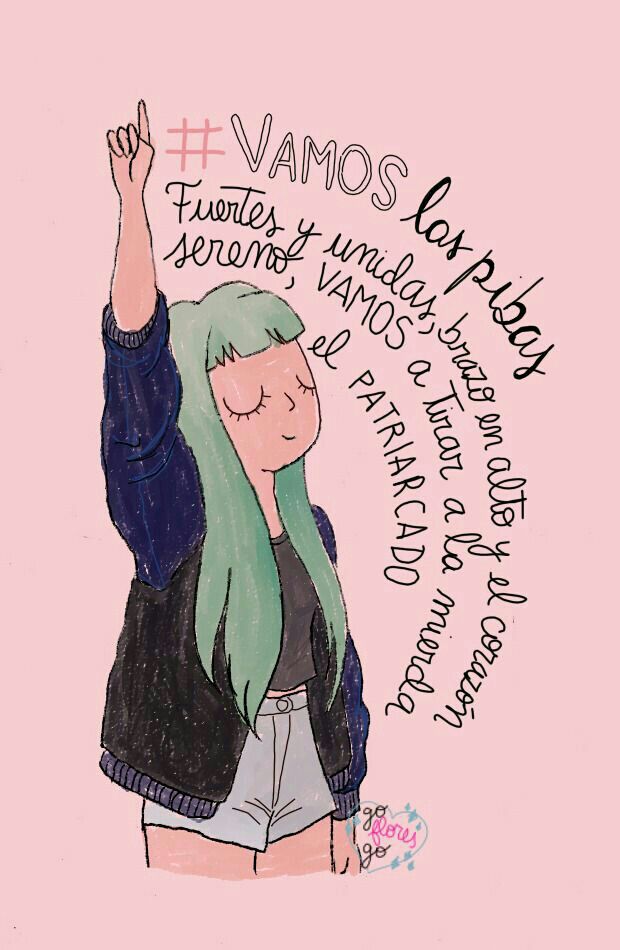 #VAMOS las pibas
Fuertes y unidas, brazo en alto y el corazón
sereno, VAMOS a Tirar a la mierda
el PATRIARCADO
go
flores
go